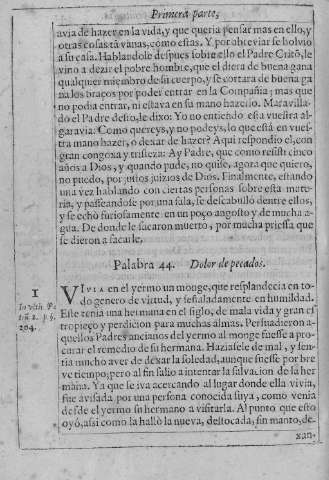 Primera parte,
avia de hazer en la vida, y que queria pensar mas en ello, y
otras cosas tã vanas, como estas. Y por abreviar se bolvio
a su casa. Hablandole despues sobre ello el Padre Critõ, le
vino a dezir el pobre hombre, que el diera de buena gana
qualquier miembro de su cuerpo, y se cortara de buena ga
na los braços por poder entrar en la Compañia; mas que
no podia entrar, ni estava en su mano hazerlo. Maravilla-
do el Padre desto, le dixo: Yo no entiendo essa vuestra al-
garavia: Como quereys, y no podeys, lo que està en vues-
tra mano hazer, o dexar de hazer? Aqui respondio el, con
gran congoxa y tristeza: Ay Padre, que como resisti cinco
años a Dios, y quando pude, no quise, agora que quiero,
no puedo, por justos juizios de Dios. Finalmente, estando
una vez hablando con ciertas personas sobre esta mate-
ria, y passeandose por una sala, se descabullò dentre ellos,
y se echò furiosamente en un poço angosto y de mucha a-
gua. De donde le sacaron muerto, por mucha priessa que
se dieron a sacarle.
Palabra 44. Dolor de pecados.
1
In vitis. P.
204.
VIVIA en el yermo un monge, que resplandecia en to-
do genero de virtud, y señaladamente en humildad.
Este tenia una hermana en el siglo, de mala vida y gran es
tropieço y perdicion para muchas almas. Persuadieron a-
quellos Padres ancianos del yermo al monge fuesse a pro-
curar el remedio de su hermana. Haziasele de mal, y sen-
tia mucho aver de dexar la soledad, aunque fuesse por bre
ve tiempo; pero al fin salio a intentar la salvacion de la her
mana. Ya que se iva acercando al lugar donde ella vivia,
fue avisada por una persona conocida suya, como venia
desde el yermo su hermano a visitarla. Al punto que esto
oyò, assi como la hallò la nueva, destocada, sin manto, de-
xan-